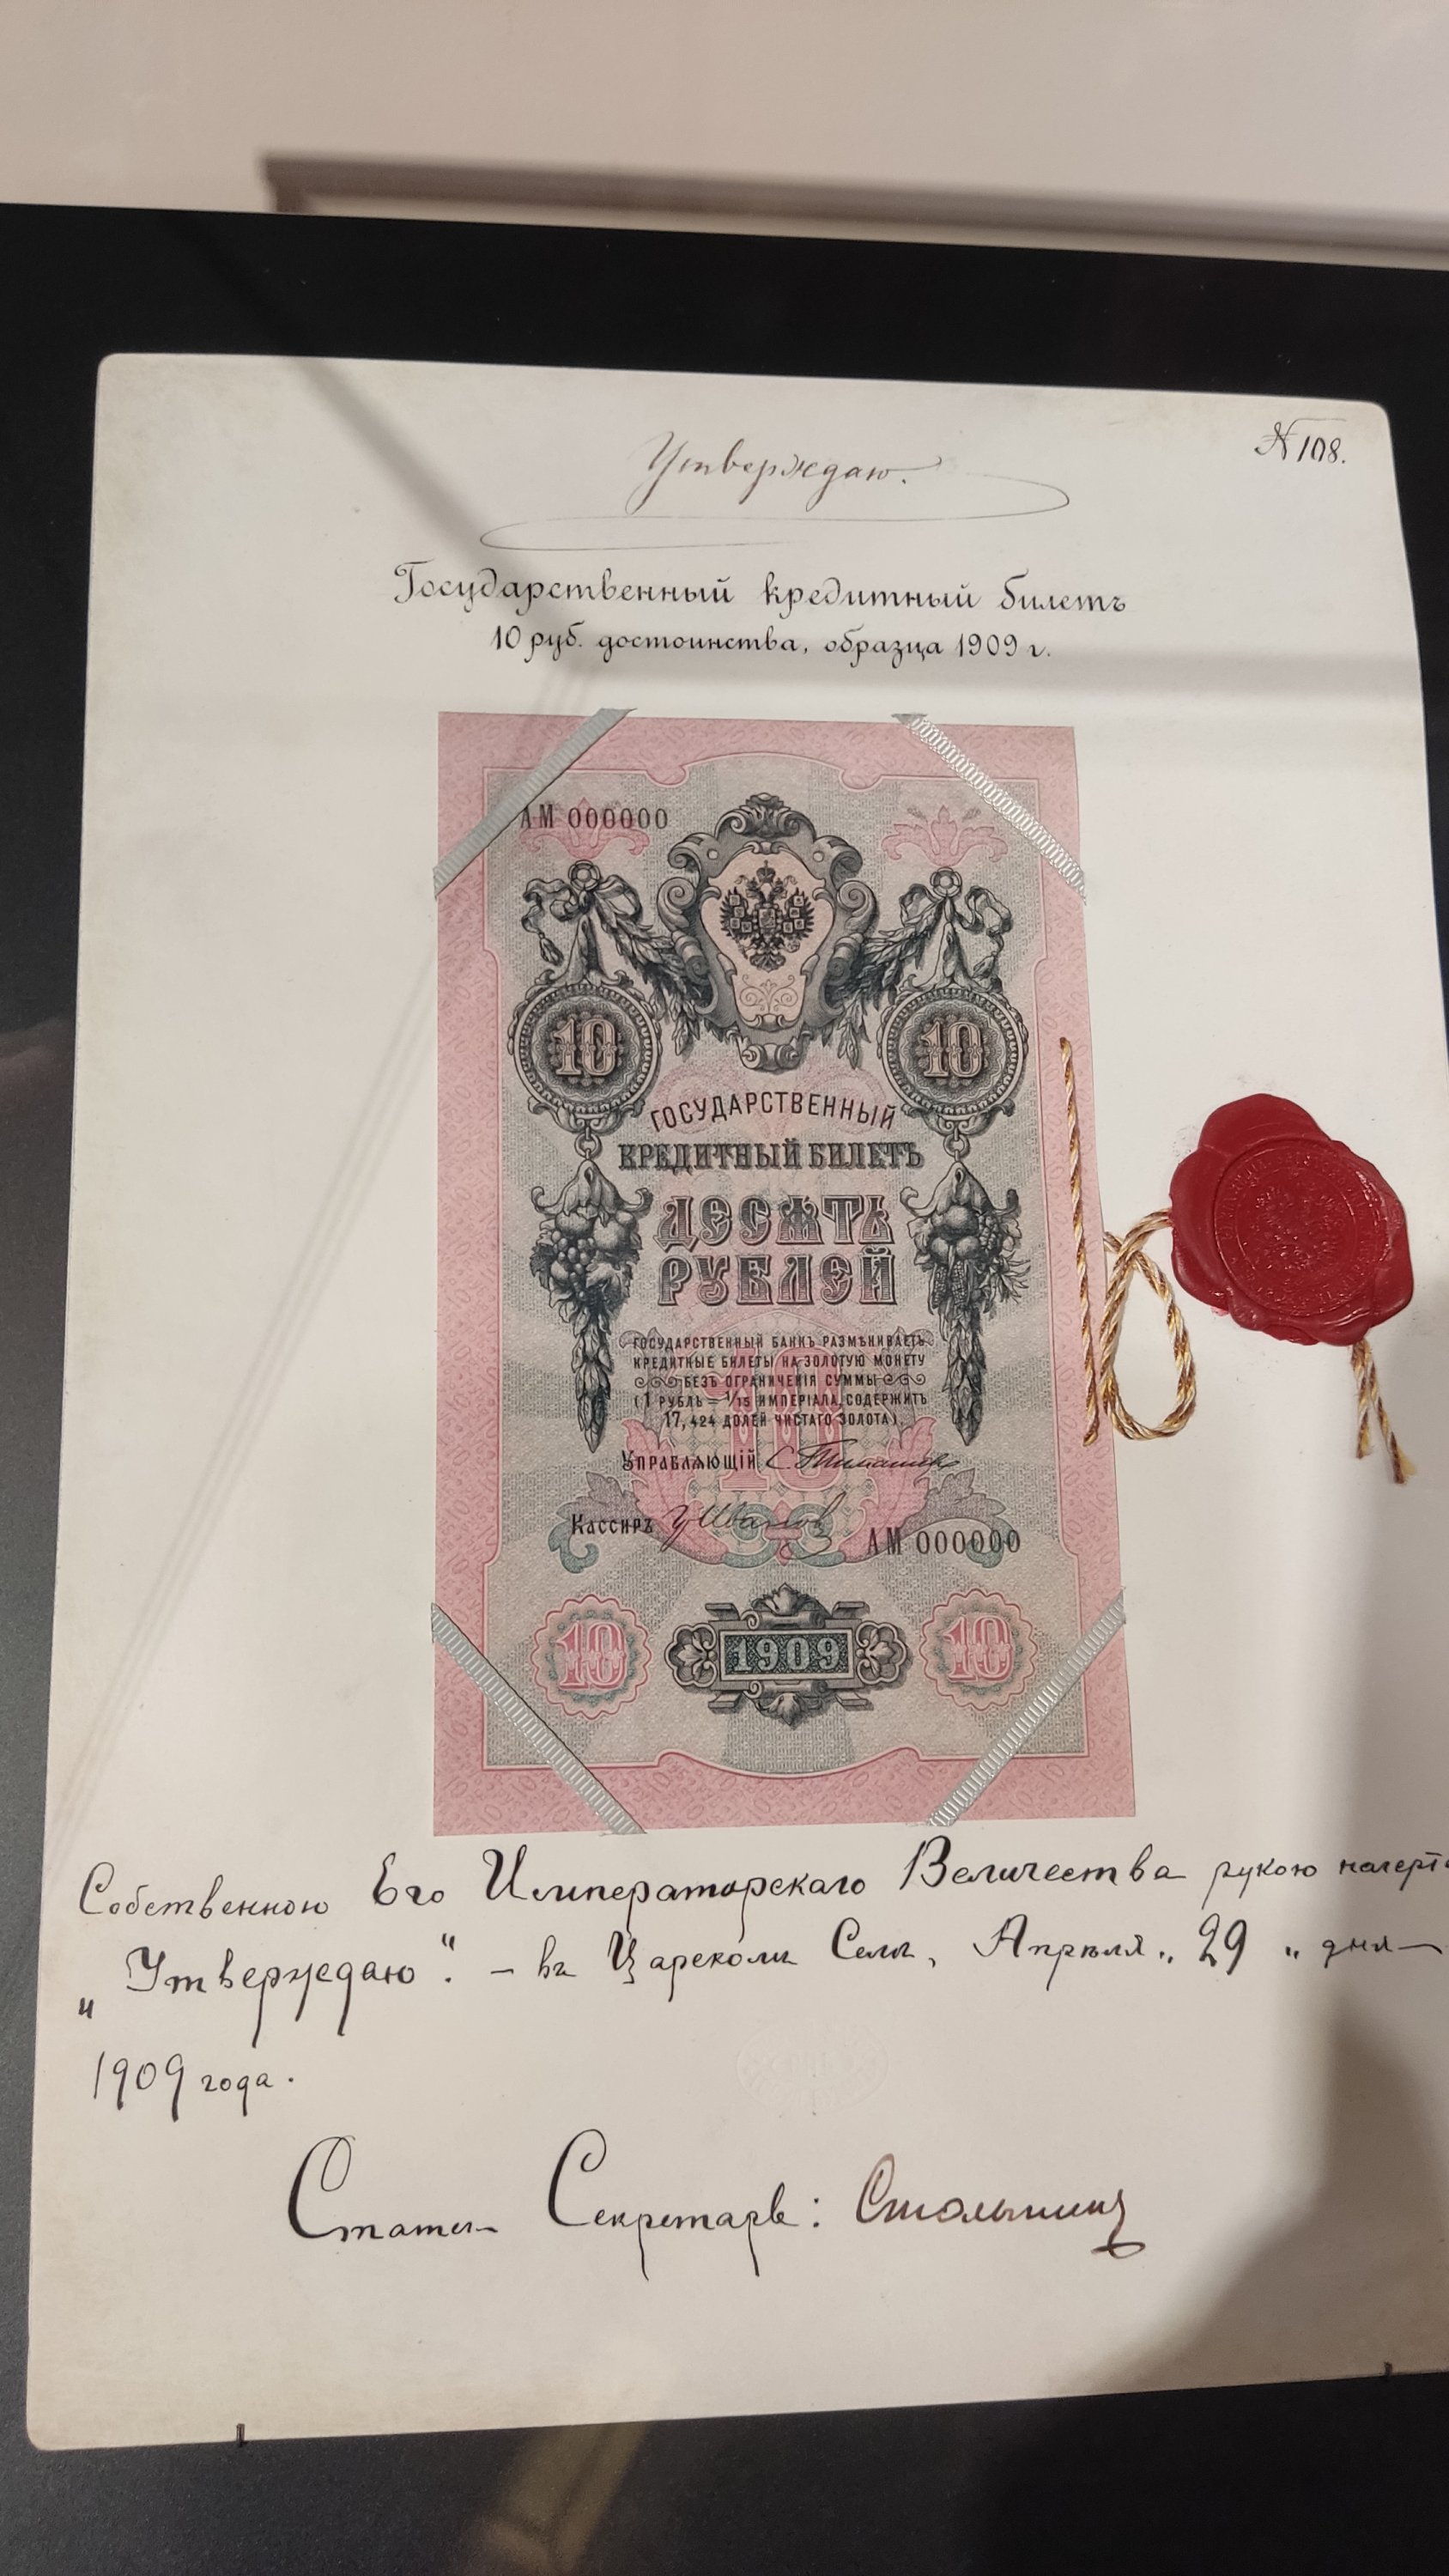 № 108.
Утверждаю.
Государственный кредитный билетъ
10 руб. достоинства, образца 1909 г.
АМ 000000
10 10
ГОСУДАРСТВЕННЫЙ
КРЕДИТНЫЙ БИЛЕТЪ
ДЕСЯТЬ
РУБЛЕЙ
ГОСУДАРСТВЕННЫЙ БАНКЪ РАЗМѢНИВАЕТЪ
КРЕДИТНЫЕ БИЛЕТЫ НА ЗОЛОТУЮ МОНЕТУ
БЕЗЪ ОГРАНИЧЕНІЯ СУММЫ
(1 РУБЛЬ = 1/15 ИМПЕРІАЛА, СОДЕРЖИТЪ
17,424 ДОЛЕЙ ЧИСТАГО ЗОЛОТА).
10
УПРАВЛЯЮЩІЙ С. Тимашевъ
КАССИРЪ Иванов
АМ 000000
10 1909 10
Собственною Его Императорскаго Величества рукою начерта
„Утверждаю“. – въ Царскомъ Селѣ, Апрѣля „29„ дня
1909 года.
Статсъ-Секретарь: Столыпинъ